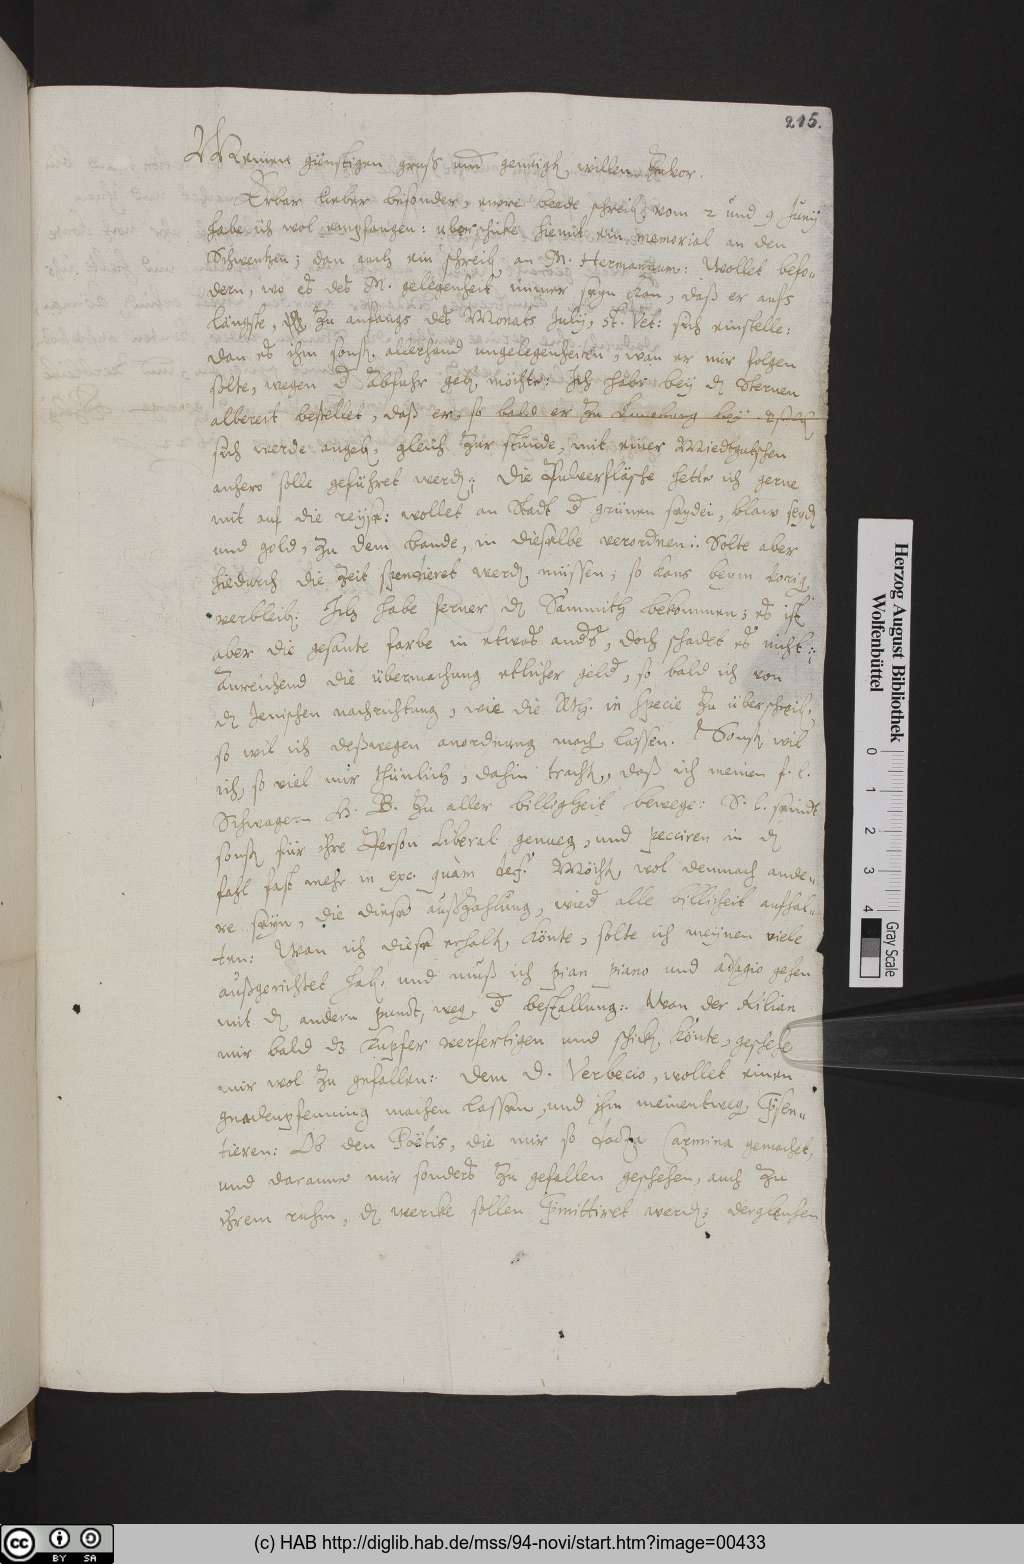 215.
Meinen günstigen gruß und geneigt. willen zuvor.
Erbar lieber besonder, euere beede schreib. vom 2 und 9 Junij
habe ich wol empfangen: uberschicke hiemit ein memorial an den
Schwentzen; dan auch ein schreib. an M. Hermannum: Wollet befo-
dern, wo es des M. gelegenheit immer seyn kan, daß er aufs
längste, zu anfangs des Monats Julij, st. Vet: sich einstelle:
dan es ihm sonst. allerhand ungelegenheiten, wan er mir folgen
solte, wegen d abfuhr geb. möchte: Ich habe bey dz Sternen
albereit bestellet, daß er, so bald er zu bey
sich werde angeb. gleich zur stunde, mit einer Miedtgutschen
anhero solle geführet werd.; die Pulverfläsche hette ich gerne
mit auf die reyse: wollet an Stadt d grünen seyden, blaw seyd.
und gold, zu dem bande, in dieselbe verordnen: Solte aber
hiedurch die zeit spendieret werd. müssen; so kans beum vorig.
verbleib. Ich habe ferner dz Sammith bekommen; es ist
aber die gesante farbe in etwas anders, doch schadet es nicht:
Anreichend die übermachung etlicher geld, so bald ich von
dz Jenischen nachrichtung, wie die Rth. in specie zu uberschreib.,
so wil ich deßwegen anordnung mach. lassen. Sonst wil
ich, so viel mir thunlich, dahin tracht., daß ich meinen f. l.
Schwagern H. B. zu aller billigheit bewege: S. l. seindt
sonst für ihre Person liberal genueg, und pecciren in dz
fahl fast mehr in exc. quàm def. Möcht. wol dennoch ande-
re seyn, die diese außzahlung, wied alle billicheit aufhal-
ten: Wan ich diese erhalt. könte, solte ich meynen viele
außgerichtet hab. und muß ich pian piano und adagio gehen
mit dz andern punct, weg. d bestallung: Wan der Kilian
mir bald dz Kupfer verfertigen und schick. könte, geschehe
mir wol zu gefallen: dem D. Verbecio, wollet einen
gnadenpfenning machen lassen, und ihm meinentweg. præsen-
tieren: Ob den Poëtis, die mir so Carmina gemachet,
und daranne mir sonders zu gefallen geschehen, auch zu
ihrem ruhm, dz wercke sollen præmittiret werd.; dergleichen
Herzog August Bibliothek
Wolfenbüttel
0 1 2 3 4
Gray Scale
cc BY SA
(c) HAB http://diglib.hab.de/mss/94-novi/start.htm?image=00433